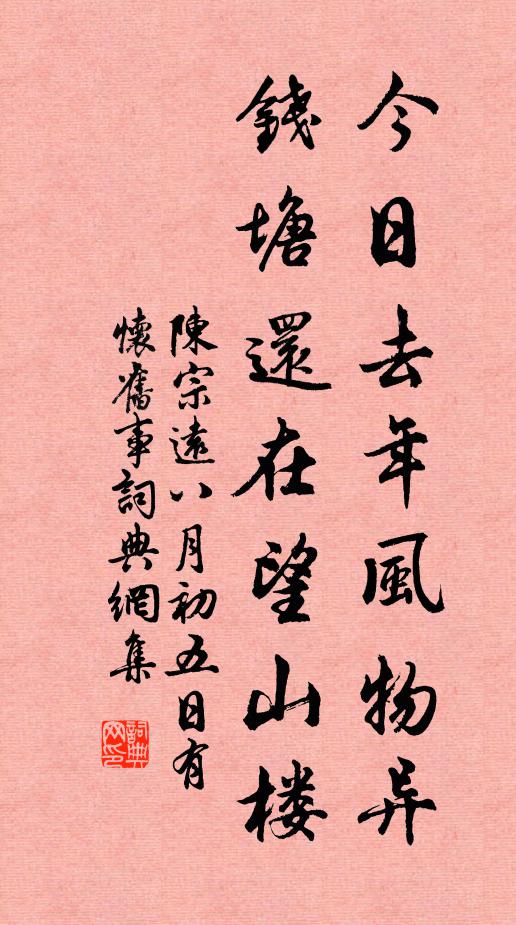 今日去年風物异
錢塘還在望山楼
陳宗遠八月初五日有
懷舊事詞典網集
詞典
网印